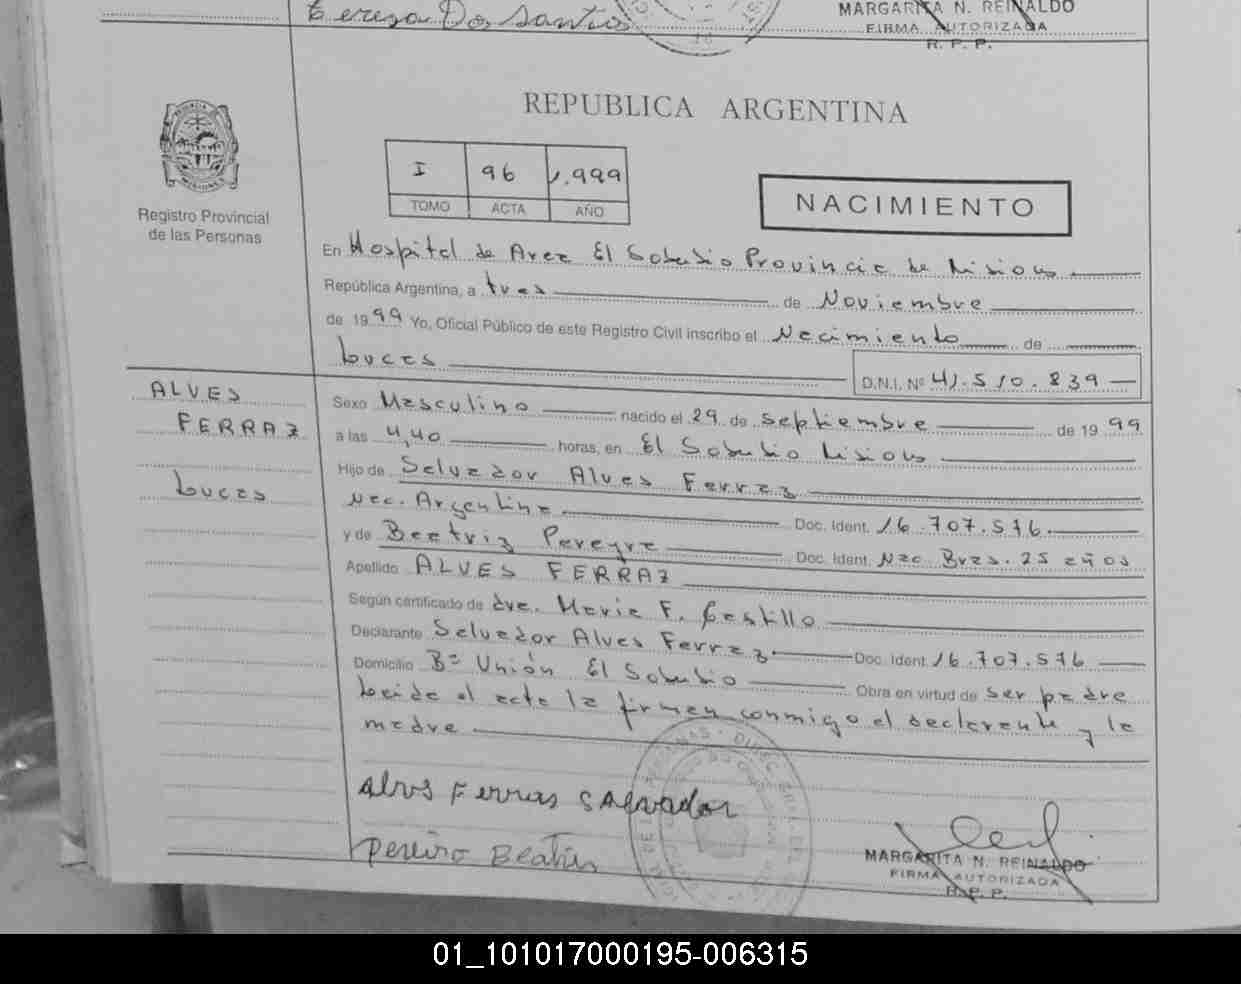 Teresa Dos Santos
MARGARITA N. REINALDO
FIRMA AUTORIZADA
R. P. P.
REPUBLICA ARGENTINA
I 96 1.999
TOMO ACTA AÑO
NACIMIENTO
Registro Provincial
de las Personas
En Hospital de Area El Soberbio Provincia de Misiones
República Argentina, a tres de Noviembre
de 1999 Yo, Oficial Público de este Registro Civil inscribo el Nacimiento de
Lucas
D.N.I. Nº 41.510.839
ALVES
FERRAZ
Lucas
Sexo Masculino nacido el 29 de septiembre de 1999
a las 4,40 horas, en El Soberbio Misiones
Hijo de Salvador Alves Ferraz
Nac. Argentina Doc. Ident. 16.707.576
y de Beatriz Pereyra Doc. Ident. Nac. Bras. 25 años
Apellido ALVES FERRAZ
Según certificado de dra. Maria F. Castillo
Declarante Salvador Alves Ferraz Doc. Ident. 16.707.576
Domicilio Bº Unión El Soberbio Obra en virtud de ser padre
Leida el acta la firman conmigo el declarante y la
madre
Alvs Ferras SAlvador
pereiro Beatris
MARGARITA N. REINALDO
FIRMA AUTORIZADA
R. P. P.
01_101017000195-006315